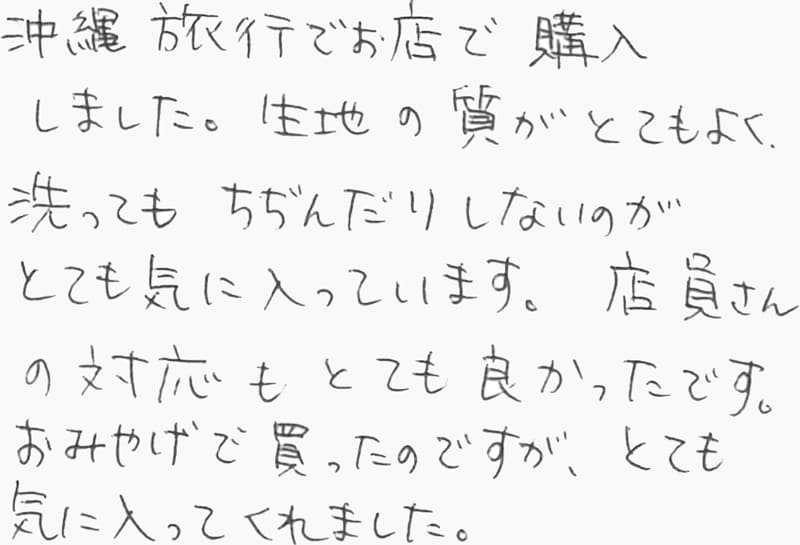 沖縄旅行でお店で購入
しました。生地の質がとてもよく、
洗ってもちぢんだりしないのが
とても気に入っています。店員さん
の対応もとても良かったです。
おみやげで買ったのですが、とても
気に入ってくれました。